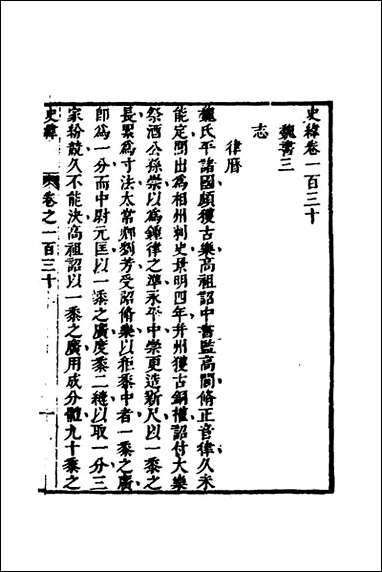 史緯卷一百三十
魏書三
志
律曆
魏氏平諸國頗獲古樂高祖詔中書監高閭脩正音律久未
能定閭出為相州刺史景明四年并州獲古銅權詔付大樂
祭酒公孫崇以為鍾律之準永平中崇更造新尺以一黍之
長累為寸法太常卿劉芳受詔脩樂以秬黍中者一黍之廣
卽為一分而中尉元匡以一黍之廣度黍二縫以取一分三
家紛競久不能決高祖詔以一黍之廣用成分體九十黍之
史緯
卷之一百三十
一